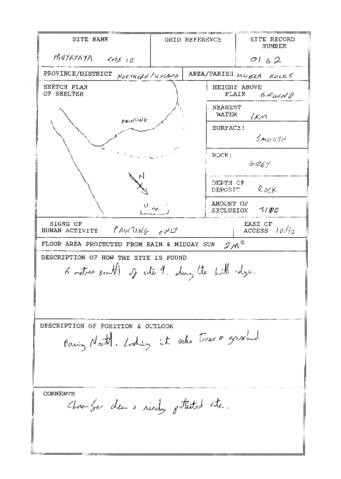 SITE NAME
GRID REFERENCE
SITE RECORD
NUMBER
0162
PROVINCE/DISTRICT NORTHERN/KASAMA
AREA/PARISH MWELA ROCKS
SKETCH PLAN
OF SHELTER
PAINTING
N
m
HEIGHT ABOVE
PLAIN GROUND
NEAREST
WATER 1KM
SURFACE:
SMOOTH
ROCK:
GREY
DEPTH OF
DEPOSIT ROCK
AMOUNT OF
SECLUSION
SIGNS OF
HUMAN ACTIVITY PAINTING ONLY
EASE OF
ACCESS 10/10
FLOOR AREA PROTECTED FROM RAIN & MIDDAY SUN 2M²
DESCRIPTION OF HOW THE SITE IS FOUND
6 metres south of site 9. along the hill edge.
DESCRIPTION OF POSITION & OUTLOOK
Facing North. Looking trees
COMMENTS
nicely protected site.